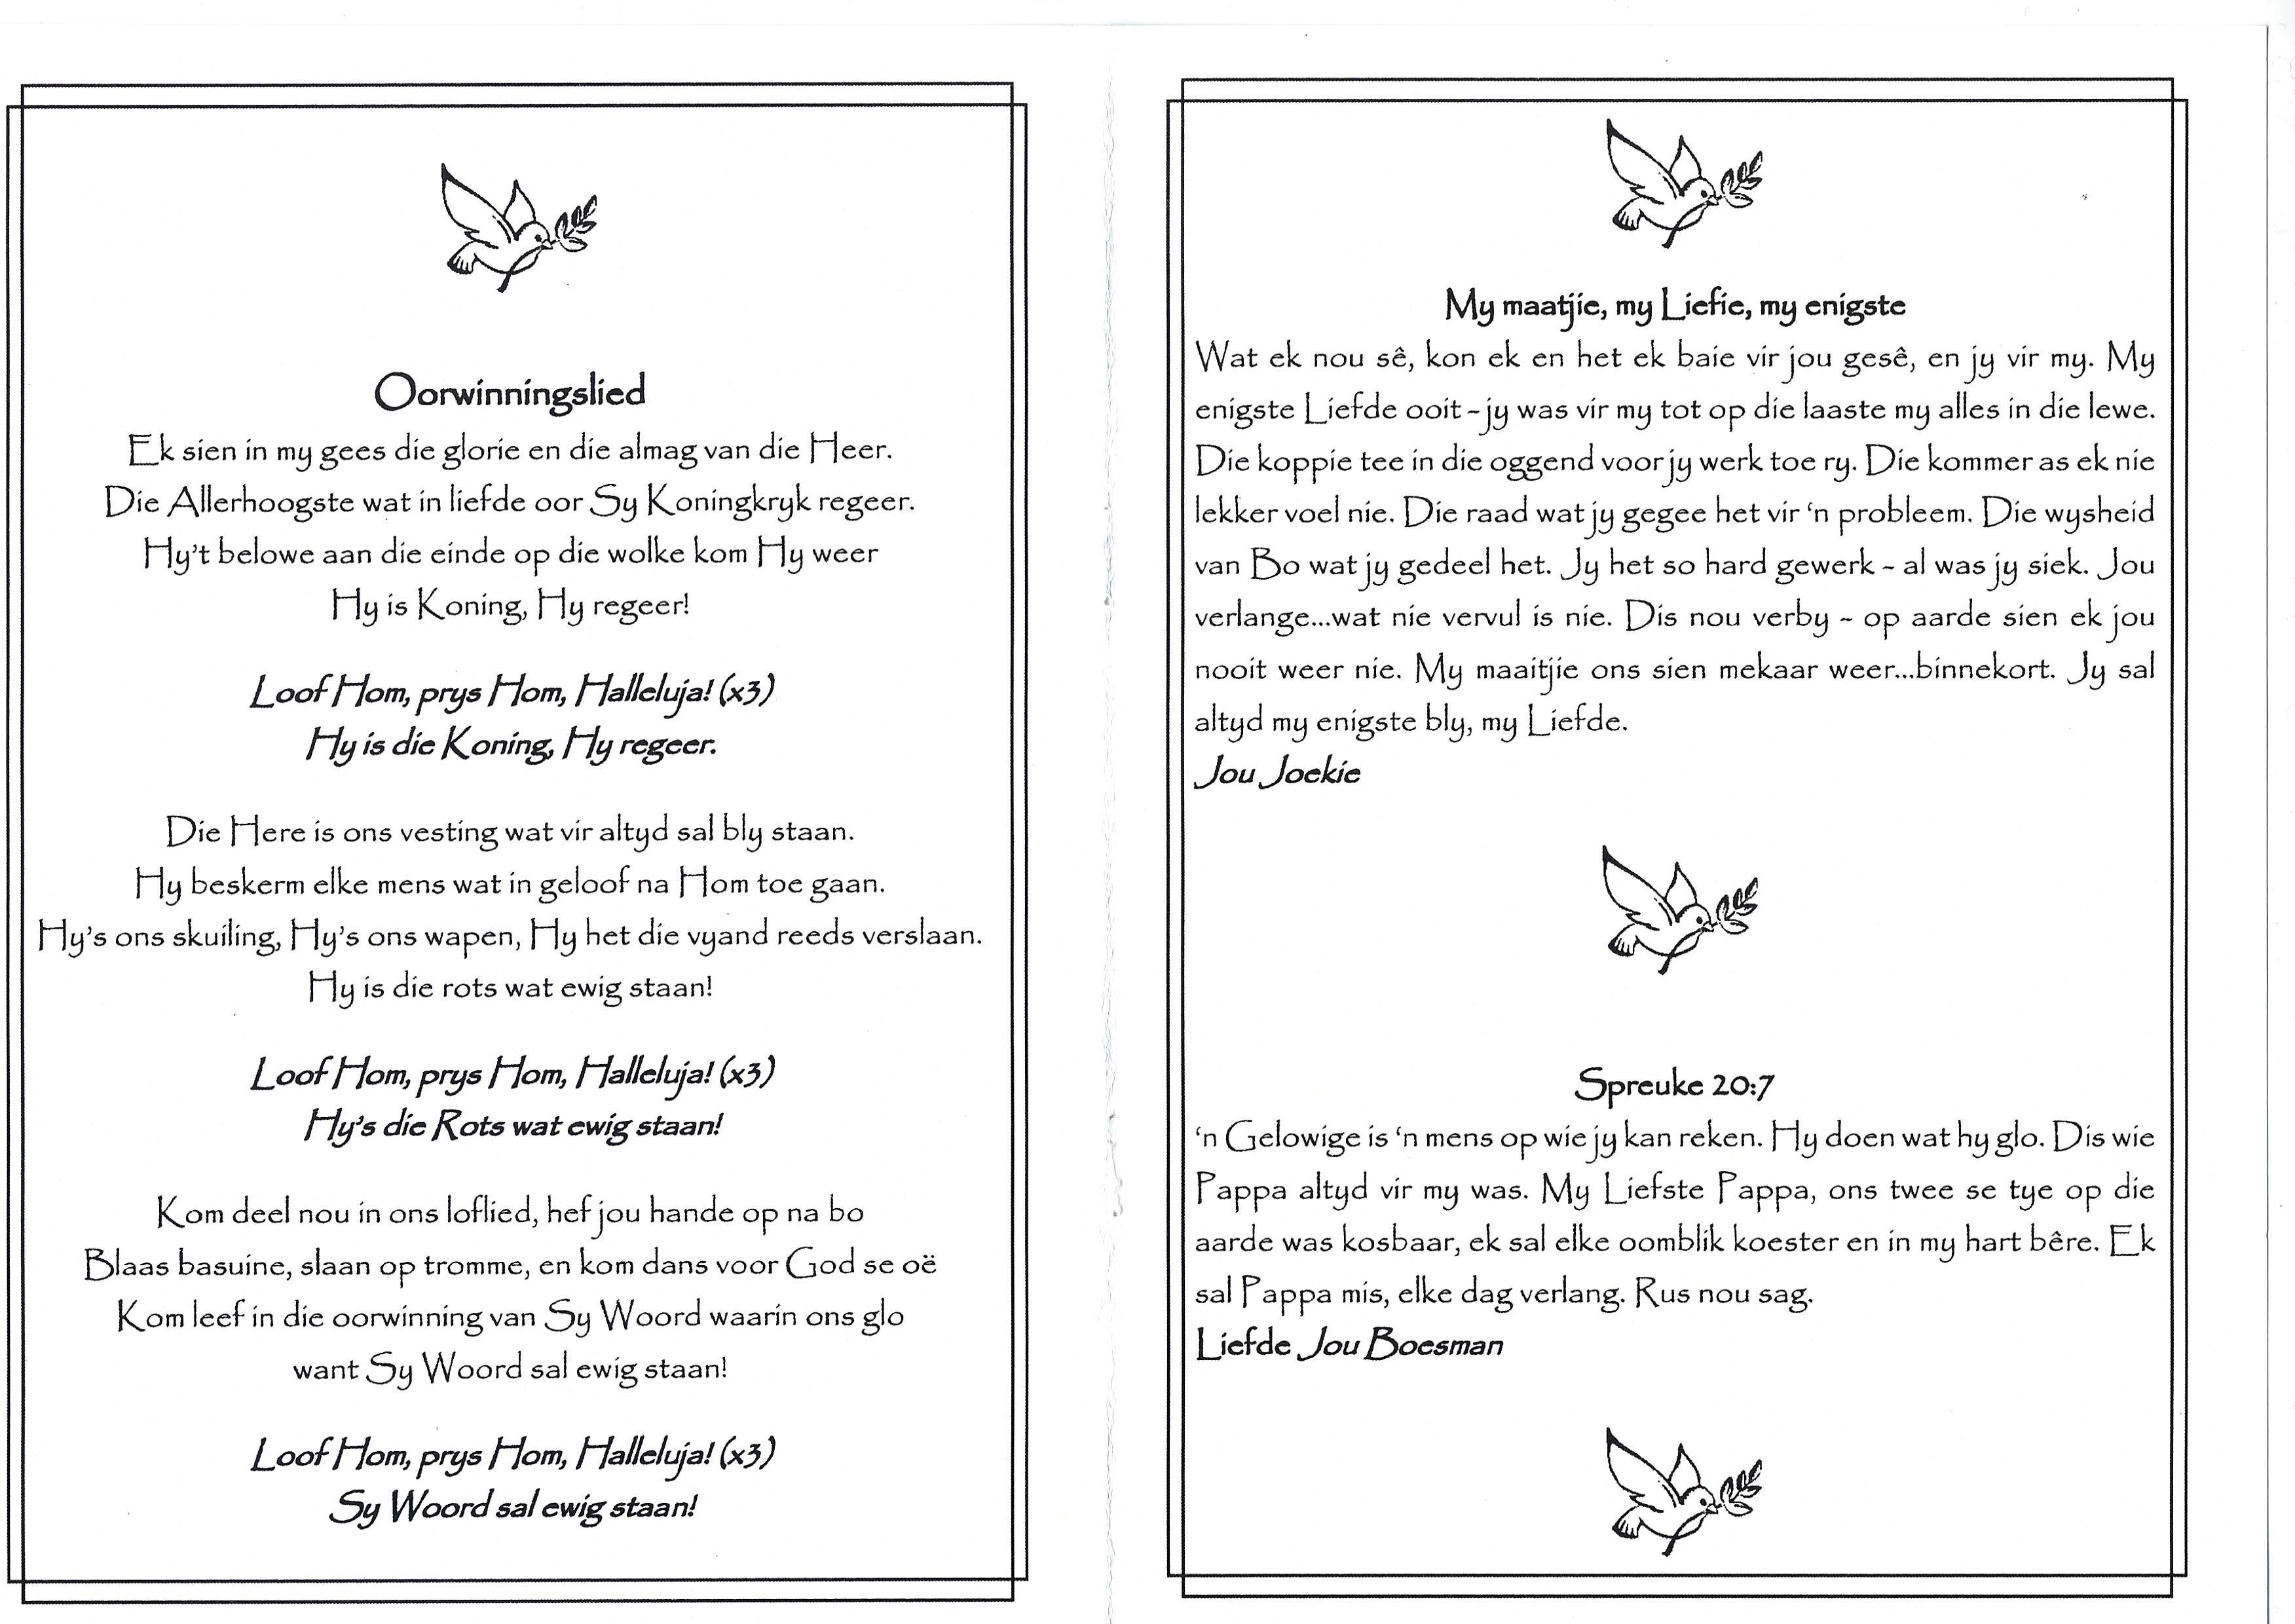 Oorwinningslied
Ek sien in my gees die glorie en die almag van die Heer.
Die Allerhoogste wat in liefde oor Sy Koningkryk regeer.
Hy't belowe aan die einde op die wolke kom Hy weer
Hy is Koning, Hy regeer!
Loof Hom, prys Hom, Halleluja! (x3)
Hy is die Koning, Hy regeer.
Die Here is ons vesting wat vir altyd sal bly staan.
Hy beskerm elke mens wat in geloof na Hom toe gaan.
Hy's ons skuiling, Hy's ons wapen, Hy het die vyand reeds verslaan.
Hy is die rots wat ewig staan!
Loof Hom, prys Hom, Halleluja! (x3)
Hy's die Rots wat ewig staan!
Kom deel nou in ons loflied, hef jou hande op na bo
Blaas basuine, slaan op tromme, en kom dans voor God se oë
Kom leef in die oorwinning van Sy Woord waarin ons glo
want Sy Woord sal ewig staan!
Loof Hom, prys Hom, Halleluja! (x3)
Sy Woord sal ewig staan!
My maatjie, my Liefie, my enigste
Wat ek nou sê, kon ek en het ek baie vir jou gesê, en jy vir my. My
enigste Liefde ooit – jy was vir my tot op die laaste my alles in die lewe.
Die koppie tee in die oggend voor jy werk toe ry. Die kommer as ek nie
lekker voel nie. Die raad wat jy gegee het vir 'n probleem. Die wysheid
van Bo wat jy gedeel het. Jy het so hard gewerk – al was jy siek. Jou
verlange...wat nie vervul is nie. Dis nou verby – op aarde sien ek jou
nooit weer nie. My maaitjie ons sien mekaar weer...binnekort. Jy sal
altyd my enigste bly, my Liefde.
Jou Joekie
Spreuke 20:7
'n Gelowige is 'n mens op wie jy kan reken. Hy doen wat hy glo. Dis wie
Pappa altyd vir my was. My Liefste Pappa, ons twee se tye op die
aarde was kosbaar, ek sal elke oomblik koester en in my hart bêre. Ek
sal Pappa mis, elke dag verlang. Rus nou sag.
Liefde Jou Boesman